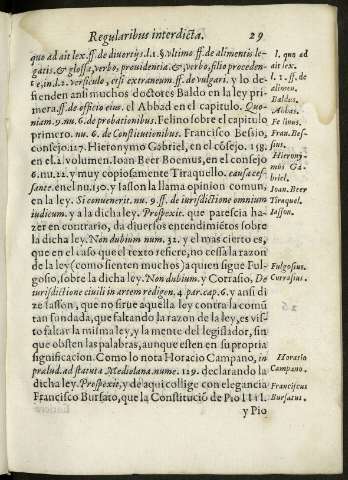 Regularibus interdicta. 29
quo ad ait lex. ff. de diuortijs. l. 1. § vltimo ff. de alimentis le-
gatis. & glossa, verbo, prouidentia, & verbo, filio proceden-
te, in. l. 2. versiculo, etsi extraneum. ff. de vulgari. y lo de-
fienden ansi muchos doctores Baldo en la ley pri-
mera. ff. de officio eius. el Abbad en el capitulo. Quo-
niam. 9. nu. 6. de probationibus. Felino sobre el capitulo
primero. nu. 6. de Constitutionibus. Francisco Bessio,
consejo. 127. Hieronymo Gabriel, en el cósejo. 158.
en el. 2. volumen. Ioan Beer Boemus, en el consejo
6. nu. 22. y muy copiosamente Tiraquello. causa ces-
sante. en el nu. 150. y Iasson la llama opinion comun,
en la ley. Si conuenerit. nu. 9. ff. de iurisdictione omnium
iudicum. y a la dicha ley. Prospexie. que parescia ha-
zer en contrario, da diuersos entendimiétos sobre
la dicha ley. Non dubium num. 32. y el mas cierto es,
que en el caso que el texto refiere, no cessa la razon
de la ley (como sienten muchos) a quien sigue Ful-
gosio, sobre la dicha ley. Non dubium. y Corrasio. De
iurisdictione ciuili in artem redigen. 4 par. cap. 6. y ansi di-
ze Iasson, que no sirue aquella ley contra la comũ
tan fundada, que faltando la razon de la ley, es vis-
to faltar la misma ley, y la mente del legislador, sin
que obsten las palabras, aunque esten en su propria
significacion. Como lo nota Horacio Campano, in
prælud. ad statuta Mediolana. nume. 129. declarando la
dicha ley. Prospexit, y de aqui collige con elegancia
Francisco Bursato, que la Constitució de Pio IIII.
y Pio
l. quo ad
ait lex.
l. 1. ff. de
alimen.
Baldus.
Abbas.
Felinus.
Fran. Bes-
sius.
Hierony-
mus Ga-
briel.
Ioan. Beer
Tiraquel.
Iasson.
Fulgosius.
Corrasius.
Horatio
Campano.
Franciscus
Bursatus.